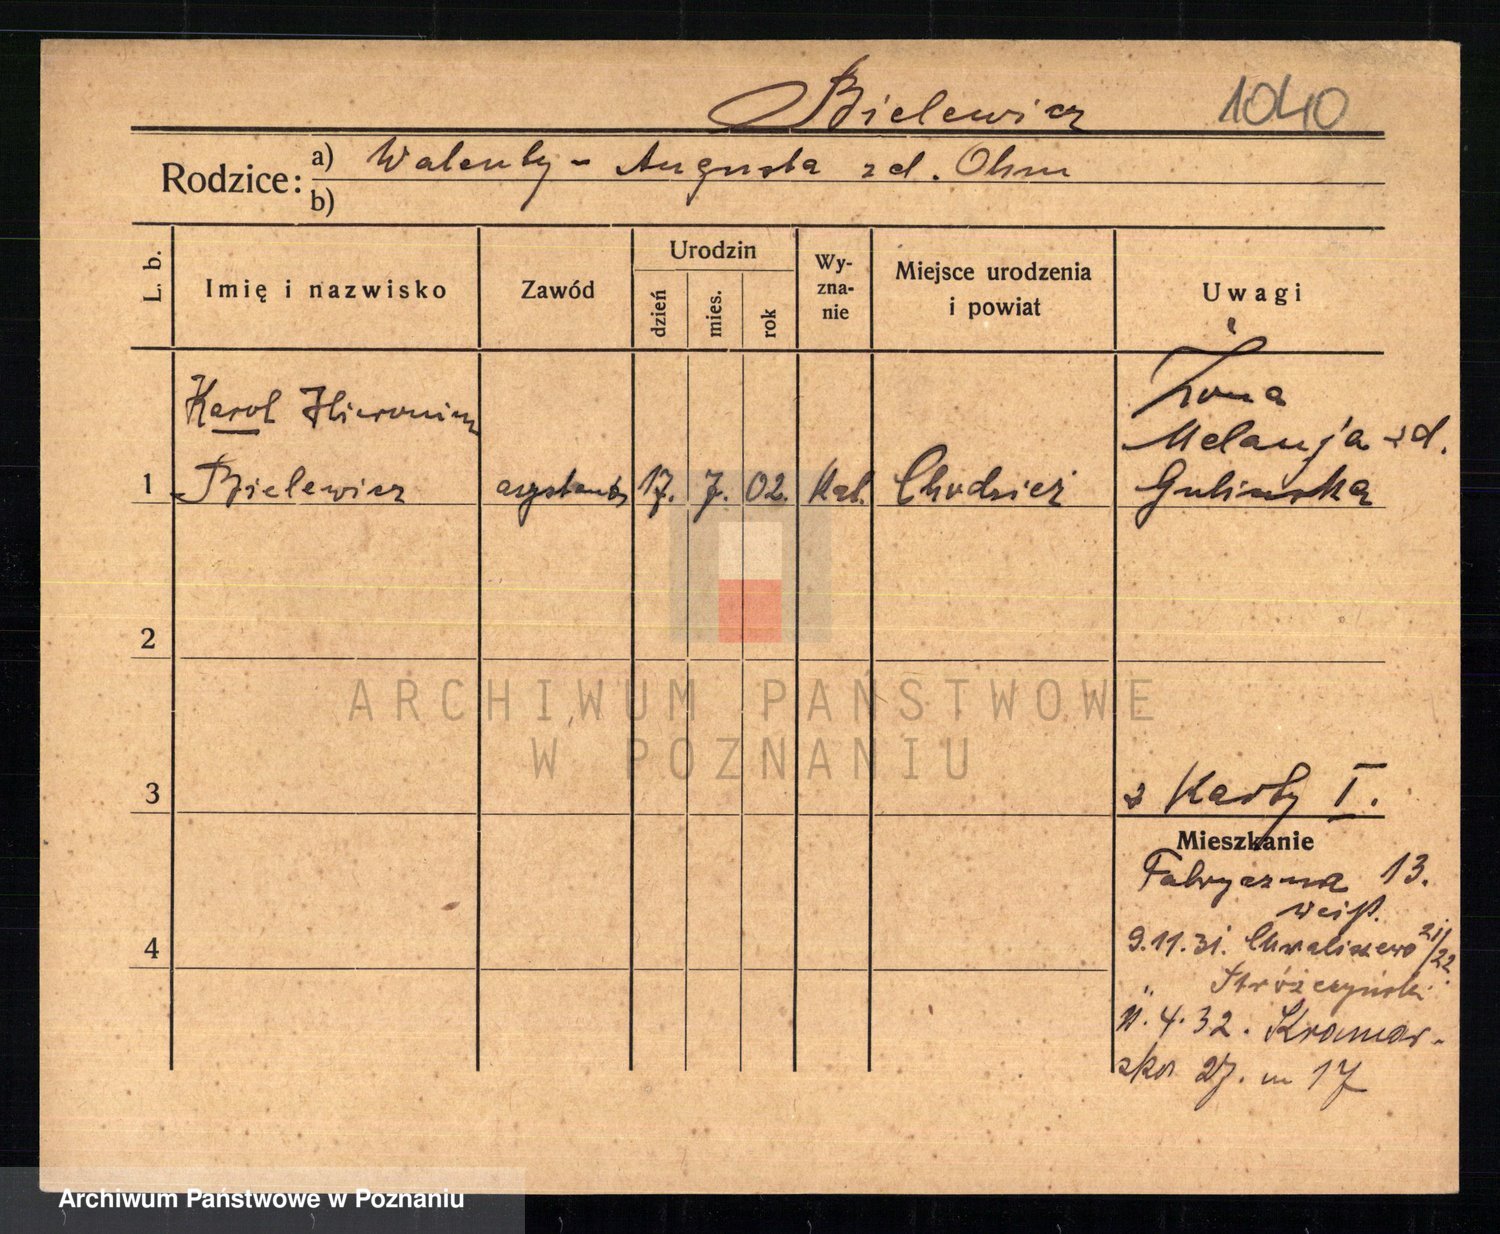 Bielewicz 1040
Rodzice:
a) Walenty - Augusta zd. Ohm
b)
L. b.
Imię i nazwisko
Zawód
Urodzin
dzień
mies.
rok
Wy-
zna-
nie
Miejsce urodzenia
i powiat
Uwagi
Karol Hieronim
1 Bielewicz 17. 7. 02. Kat. Chodzież
Żona
Melanja zd.
Gulinska
2
3
4
z Karty I.
Mieszkanie
Fabryczna 13.
9.11.31. Chwaliszewo 21/22
Stróżczyński
11.4.32. Kramar-
ska 27. m 17
ARCHIWUM PAŃSTWOWE
W POZNANIU
Archiwum Państwowe w Poznaniu